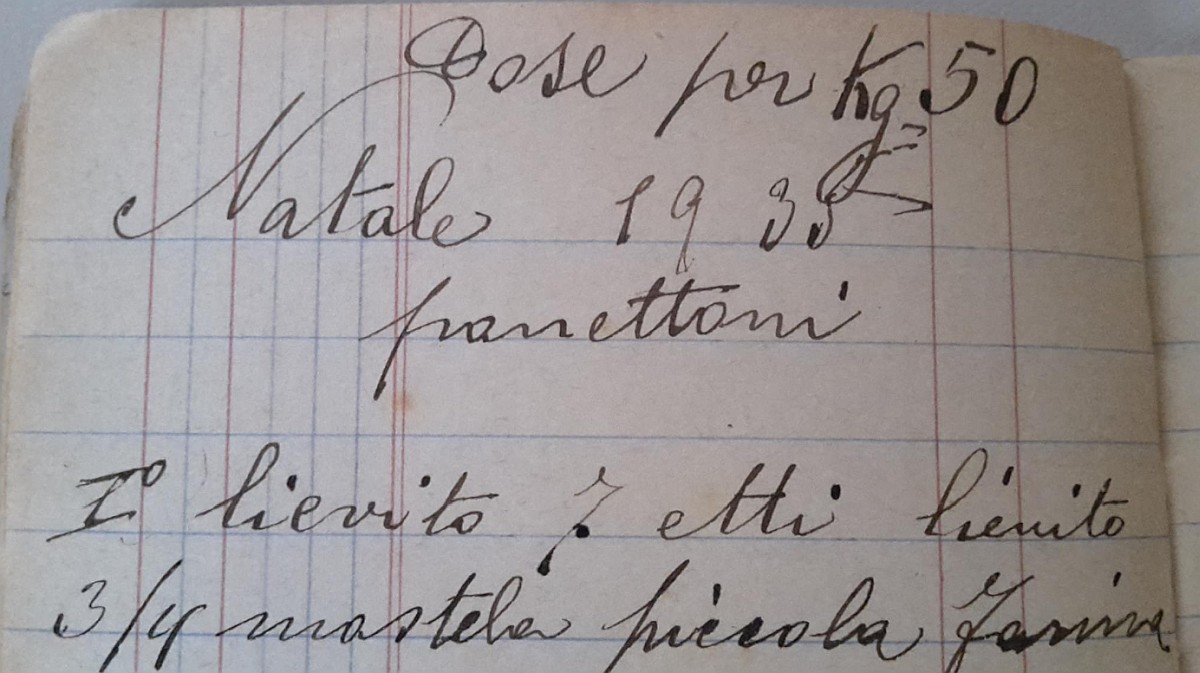 Dose per Kg 50
Natale 1935
panettoni
I° lievito 7 etti lievito
3/4 mastela piccola farina